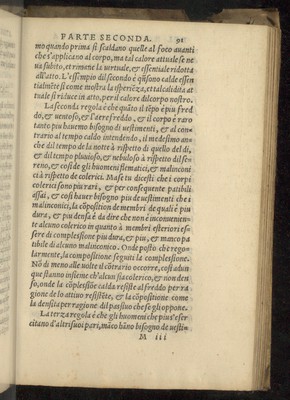 PARTE SECONDA. 91
mo quando prima si scaldano quelle al foco auanti
che s'applicano al corpo, ma tal calore attuale se ne
ua subito, et rimane la uirtuale, & essentiale ridotta
all'atto. L'essempio del secondo è
tialmẽte si come mostra la isperiẽza, et tal caldità at
tuale si riduce in atto, per il calore del corpo nostro.
La seconda regola è che quãto il tẽpo è piu fred
do, & uentoso, & l'aere freddo, & il corpo è raro
tanto piu hauemo bisogno di uestimenti, & al con‑
trario al tempo caldo intendendo, il medesimo an‑
che del tempo de la notte à rispetto di quello del dì,
& del tempo pluuioso, & nebuloso à rispetto del se‑
reno, & cosi de gli huomeni flematici, & malinconi
ci à rispetto de colerici. Ma se tu dicesti che i corpi
colerici sono piu rari, & per consequente patibili
assai, & cosi hauer bisogno piu de uestimenti che i
malinconici, la cõposition de membri de quali è piu
dura, & piu densa è da dire che non è inconuenien‑
te alcuno colerico in quanto à membri esteriori es‑
sere di complessione piu dura, & piu, & manco pa
tibile di alcuno malinconico. Onde posto che rego‑
larmente, la compositione seguiti la complessione.
Nõ di meno alle uolte il cõtrario occorre, cosi adun
que stanno insieme ch'alcun sia colerico, & non den
so, onde la cõplessiõe calda resiste al freddo per ra
gione de lo attiuo resistẽte, & la cõpositione come
la densita per ragione del passiuo che se gli oppone.
La terza regola è che gli huomeni che piu s'eser
citano d'altri suoi pari, mãco hãno bisogno de uesti‑
M iii